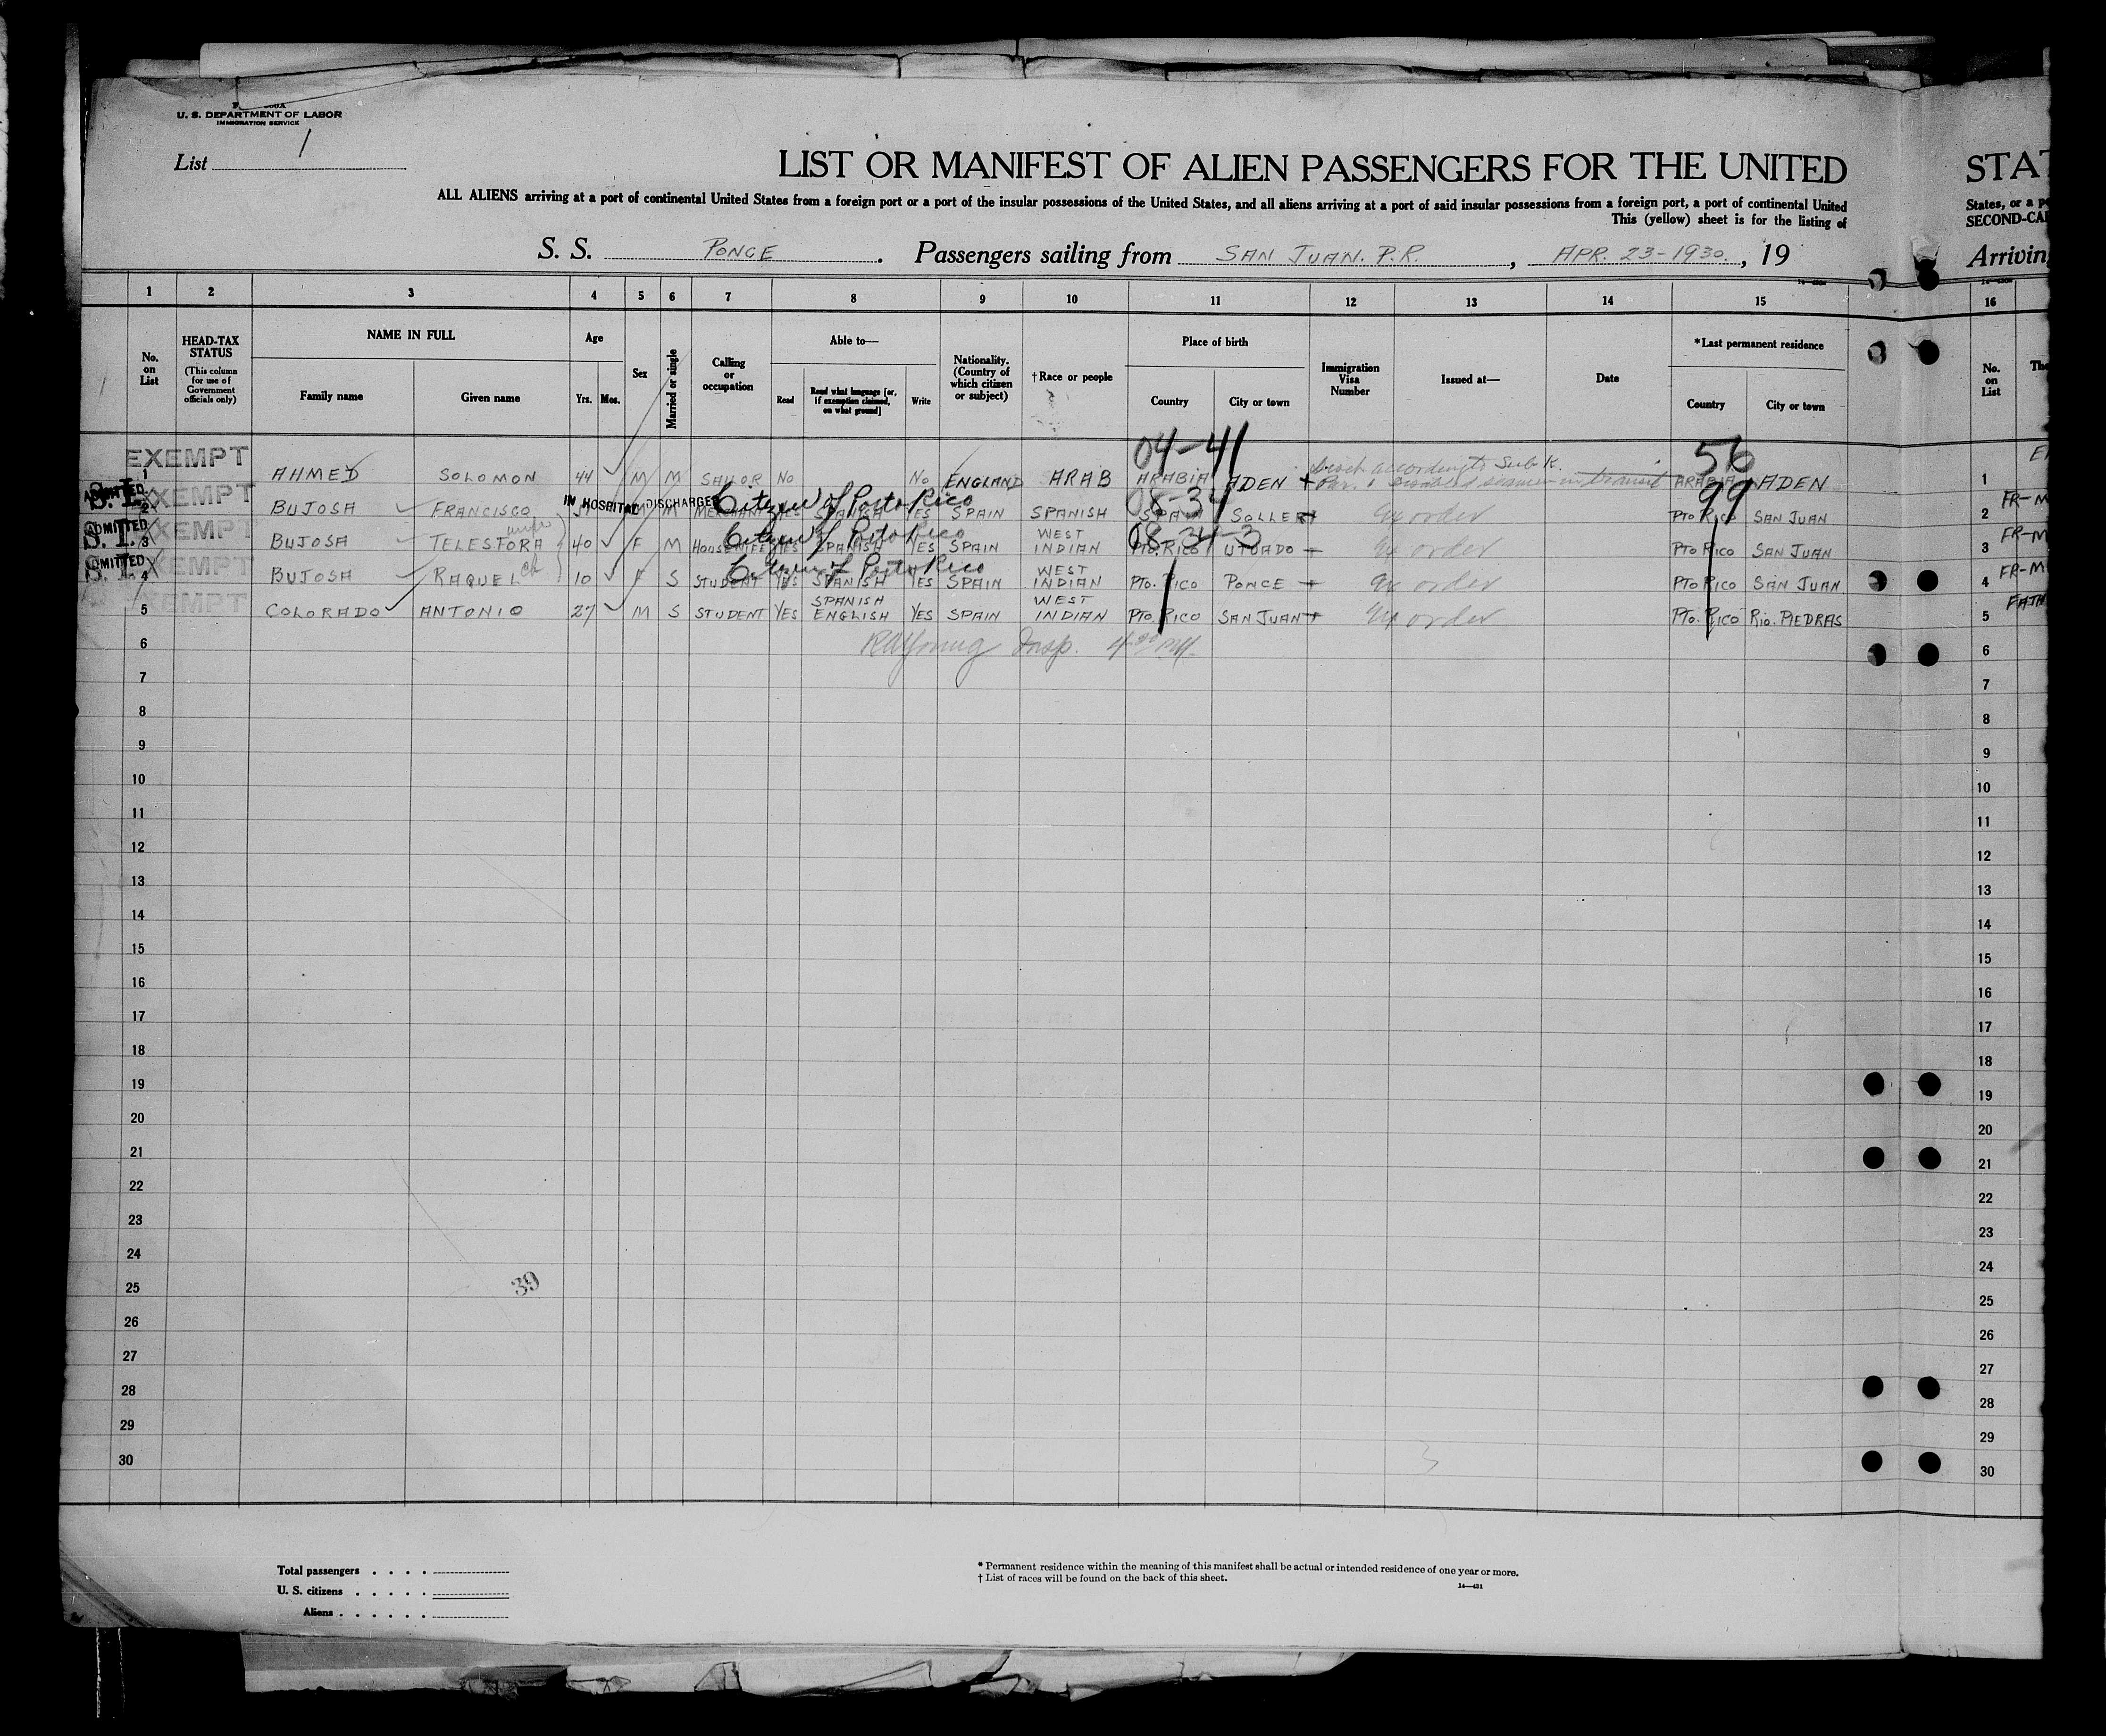 U. S. DEPARTMENT OF LABOR
IMMIGRATION SERVICE
List 1
LIST OR MANIFEST OF ALIEN PASSENGERS FOR THE UNITED
STAT
ALL ALIENS arriving at a port of continental United States from a foreign port or a port of the insular possessions of the United States, and all aliens arriving at a port of said insular possessions from a foreign port, a port of continental United
States, or a po
This (yellow) sheet is for the listing of
SECOND-CAB
S. S. PONCE . Passengers sailing from SAN JUAN. P.R. , APR. 23-1930. , 19
Arriving
1 2 3 4 5 6 7 8 9 10 11 12 13 14 15 16
No. on List
HEAD-TAX STATUS
(This column for use of Government officials only)
NAME IN FULL
Family name Given name
Age
Yrs. Mos.
Sex
Married or single
Calling or occupation
Able to—
Read
Read what language [or, if exemption claimed, on what ground]
Write
Nationality. (Country of which citizen or subject)
†Race or people
Place of birth
Country City or town
Immigration Visa Number
Issued at—
Date
*Last permanent residence
Country City or town
No. on List
04-41 56
EXEMPT
1 AHMED SOLOMON 44 M M SAILOR NO NO ENGLAND ARAB ARABIA ADEN ARABIA ADEN 1
in transit
ADMITTED S.I. EXEMPT IN HOSPITAL DISCHARGED Citizen of Porto Rico 08-34 99
2 BUJOSA FRANCISCO M M MERCHANT YES SPANISH YES SPAIN SPANISH SPAIN SOLLER order PTO RICO SAN JUAN 2 FR-M
ADMITTED S.I. EXEMPT wife Citizen of Porto Rico 08-34-3
3 BUJOSA TELESFORA 40 F M HOUSEWIFE YES SPANISH YES SPAIN WEST INDIAN PTO. RICO UTUADO order PTO RICO SAN JUAN 3 FR-M
ADMITTED S.I. EXEMPT Citizen of Porto Rico
4 BUJOSA RAQUEL ch 10 F S STUDENT YES SPANISH YES SPAIN WEST INDIAN PTO. RICO PONCE order PTO RICO SAN JUAN 4 FR-M
EXEMPT
5 COLORADO ANTONIO 27 M S STUDENT YES SPANISH ENGLISH YES SPAIN WEST INDIAN PTO RICO SAN JUAN order PTO. RICO RIO. PIEDRAS 5 FATH
Insp.
6 6
7 7
8 8
9 9
10 10
11 11
12 12
13 13
14 14
15 15
16 16
17 17
18 18
19 19
20 20
21 21
22 22
23 23
24 24
25 25
39
26 26
27 27
28 28
29 29
30 30
Total passengers . . . .
U. S. citizens . . . . .
Aliens . . . . . .
* Permanent residence within the meaning of this manifest shall be actual or intended residence of one year or more.
† List of races will be found on the back of this sheet.
14—431